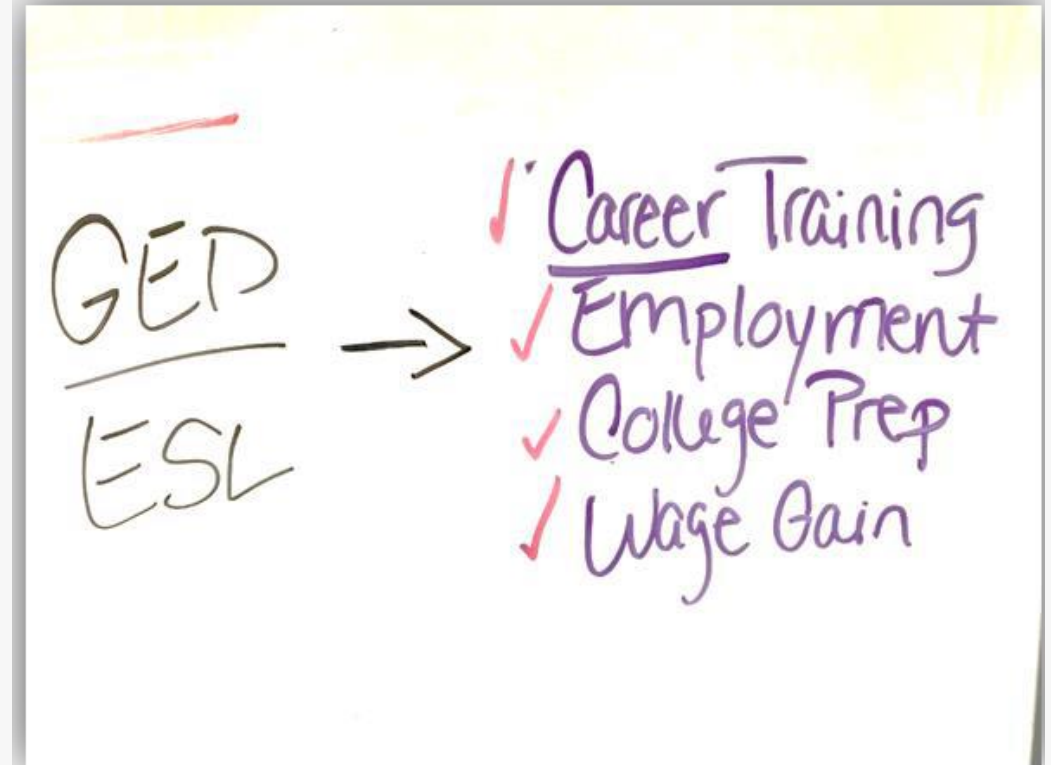 GED
ESL
→
✓ Career Training
✓ Employment
✓ College Prep
✓ Wage Gain